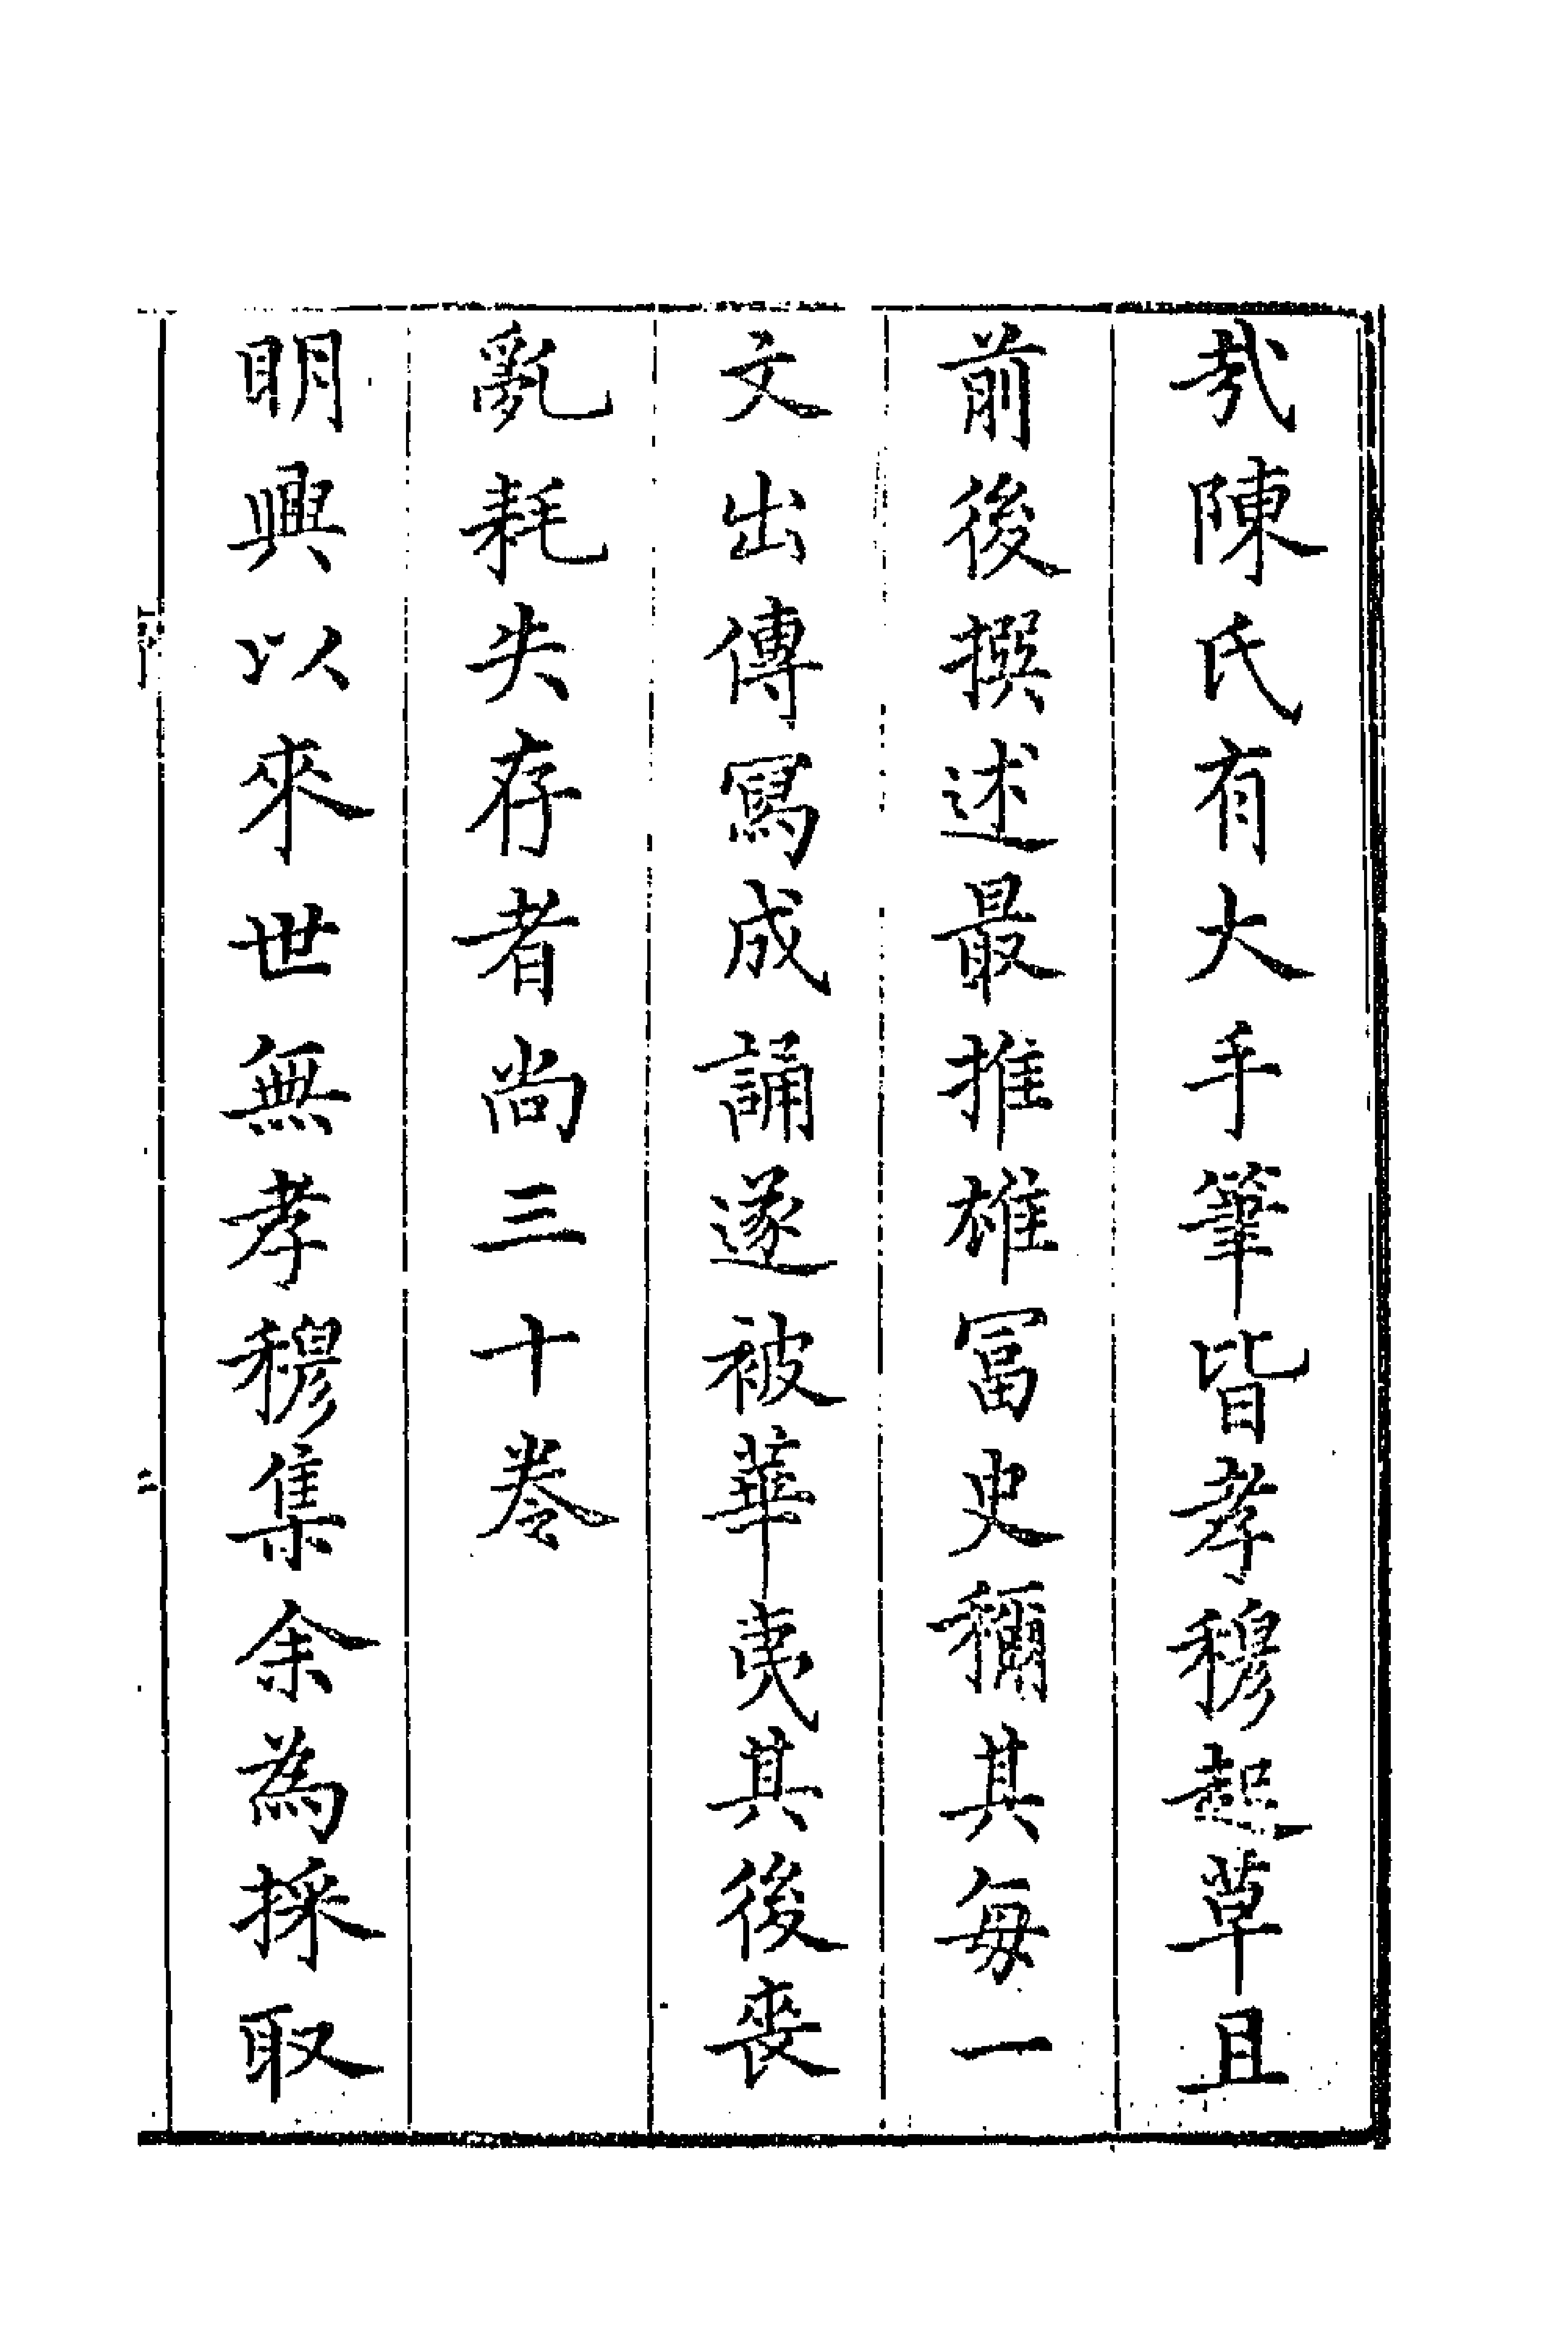 哉陳氏有大手筆皆孝穆起草且
前後撰述最推雄冨史稱其每一
文出傳寫成誦遂被華夷其後喪
亂耗失存者尚三十卷
明興以來世無孝穆集余為採取